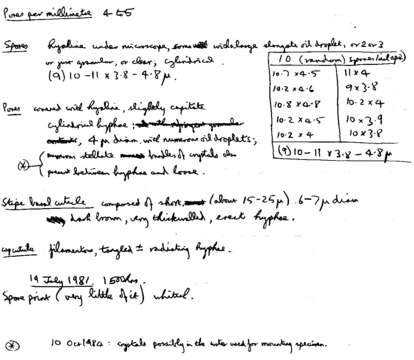 Pores per millimetre 4 to 5
Spores hyaline under microscope, some with large elongate oil droplet, or 2 or 3
or just granular, or clear, cylindrical
(9) 10-11 x 3.8 - 4.8 μ.
10 (random) spores
10.7 x 4.5 11 x 4
10.2 x 4.6 9 x 3.8
10.8 x 4.8 10.2 x 4
10.2 x 4.5 10 x 3.9
10.2 x 4 10 x 3.8
(9) 10-11 x 3.8 - 4.8 μ
Pores covered with hyaline, slightly capitate
cylindrical hyphae
4 μ diam, with numerous oil droplets;
* stellate bundles of crystals also
present between hyphae and loose.
Stipe basal cuticle composed of short, (about 15-25 μ) 6-7 μ diam
dark brown, very thickwalled, erect hyphae.
cap cuticle filamentous, tangled ± radiating hyphae.
19 July 1981 1500hrs.
Spore print (very little of it) whitish.
* 10 Oct 1984: crystals possibly in the water used for mounting specimen.